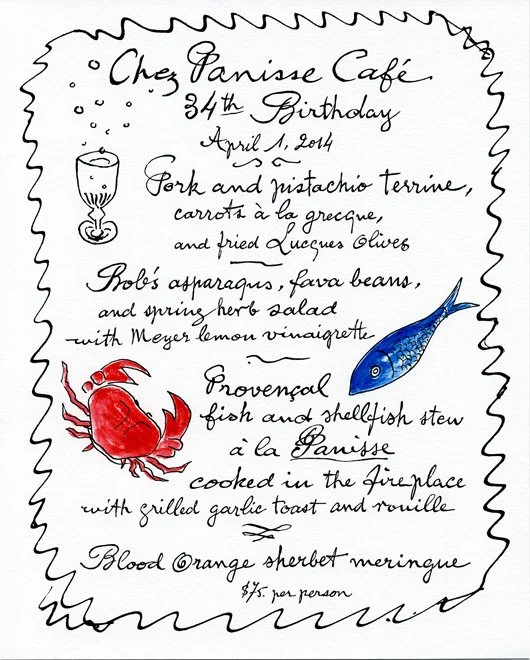 Chez Panisse Café
34th Birthday
April 1, 2014
Pork and pistachio terrine,
carrots à la grecque,
and fried Lucques Olives
Bob's asparagus, fava beans,
and spring herb salad
with Meyer lemon vinaigrette
Provençal
fish and shellfish stew
à la Panisse
cooked in the fireplace
with grilled garlic toast and rouille
Blood Orange sherbet meringue
$75. per person